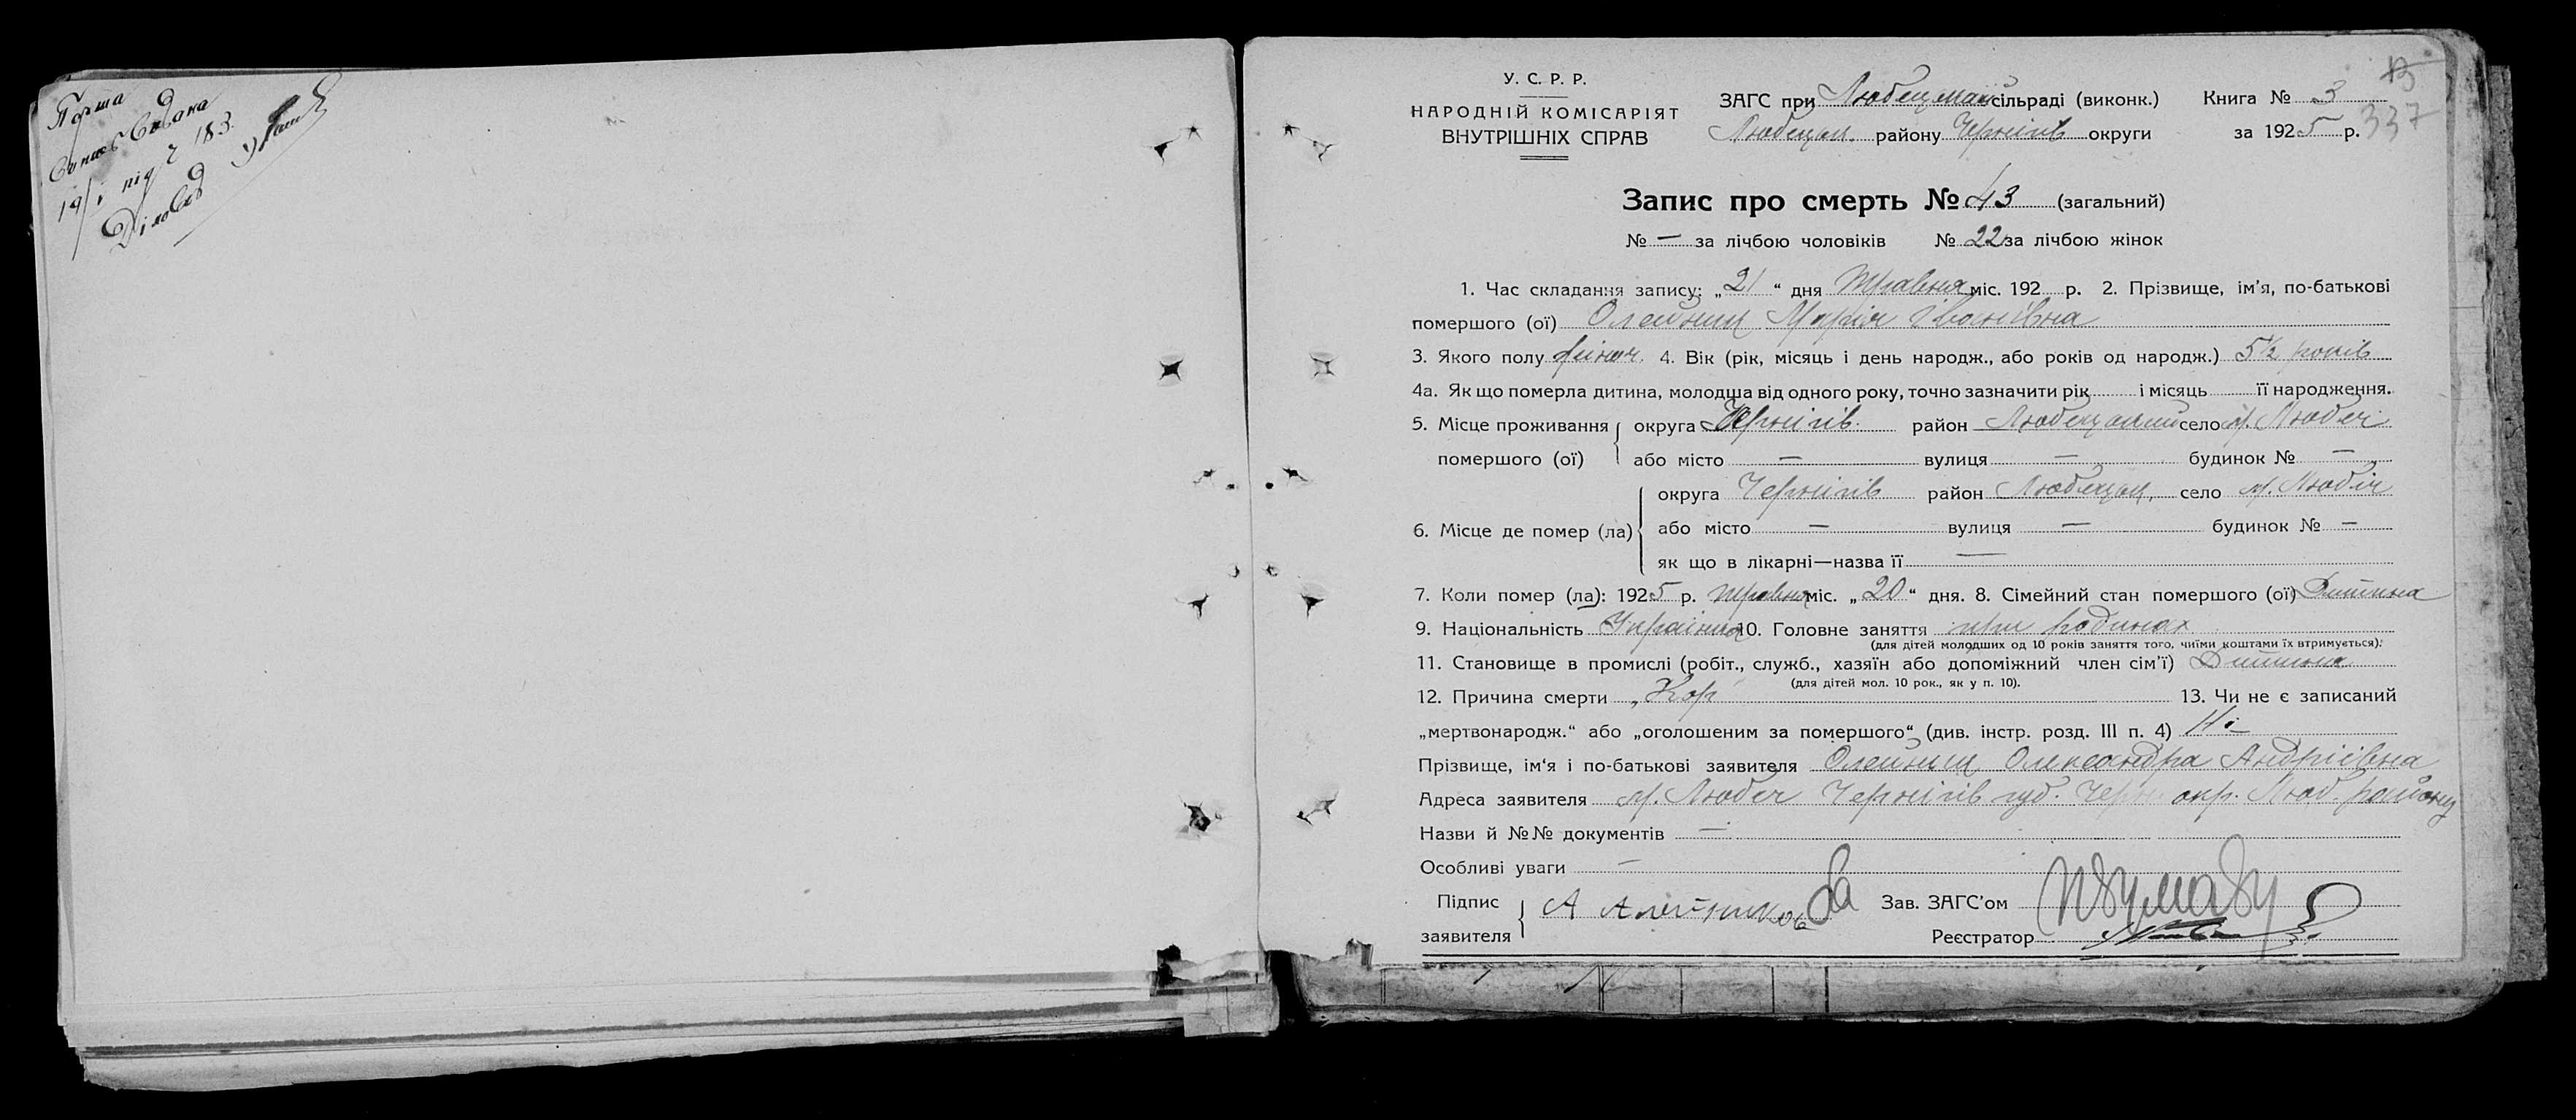 19/I під Ч 183.
Діловод
У. С. Р. Р.
НАРОДНІЙ КОМІСАРІЯТ
ВНУТРІШНІХ СПРАВ
ЗАГС при сільраді (виконк.) Книга № 3
району Чернігів округи за 1925 р. 337
Запис про смерть № 43 (загальний)
№ — за лічбою чоловіків № 22 за лічбою жінок
1. Час складання запису: „21“ дня Травня міс. 192 р. 2. Прізвище, ім'я, по-батькові
помершого (ої) Олейник Марія Іванівна
3. Якого полу жіноч. 4. Вік (рік, місяць і день народж., або років од народж.) 5½ років
4а. Як що померла дитина, молодша від одного року, точно зазначити рік і місяць її народження.
5. Місце проживання помершого (ої) округа Чернігів. район село м. Любеч
або місто — вулиця — будинок № —
6. Місце де помер (ла) округа Чернігів район село м. Любеч
або місто — вулиця — будинок № —
як що в лікарні—назва її —
7. Коли помер (ла): 1925 р. Травня міс. „20“ дня. 8. Сімейний стан помершого (ої) Дитина
9. Національність Українка 10. Головне заняття при родинах
(для дітей молодших од 10 років заняття того, чиїми коштами їх втримується).
11. Становище в промислі (робіт., служб., хазяїн або допоміжний член сім'ї) Дитина
(для дітей мол. 10 рок., як у п. 10).
12. Причина смерти „Кор" 13. Чи не є записаний
„мертвонародж.“ або „оголошеним за помершого“ (див. інстр. розд. III п. 4) Ні
Прізвище, ім‘я і по-батькові заявителя Олейник Олександра Андріівна
Адреса заявителя м. Любеч Чернігів губ. Черн. окр. Люб. району
Назви й №№ документів —
Особливі уваги —
Підпис заявителя А Алейникова Зав. ЗАГС'ом
Реєстратор